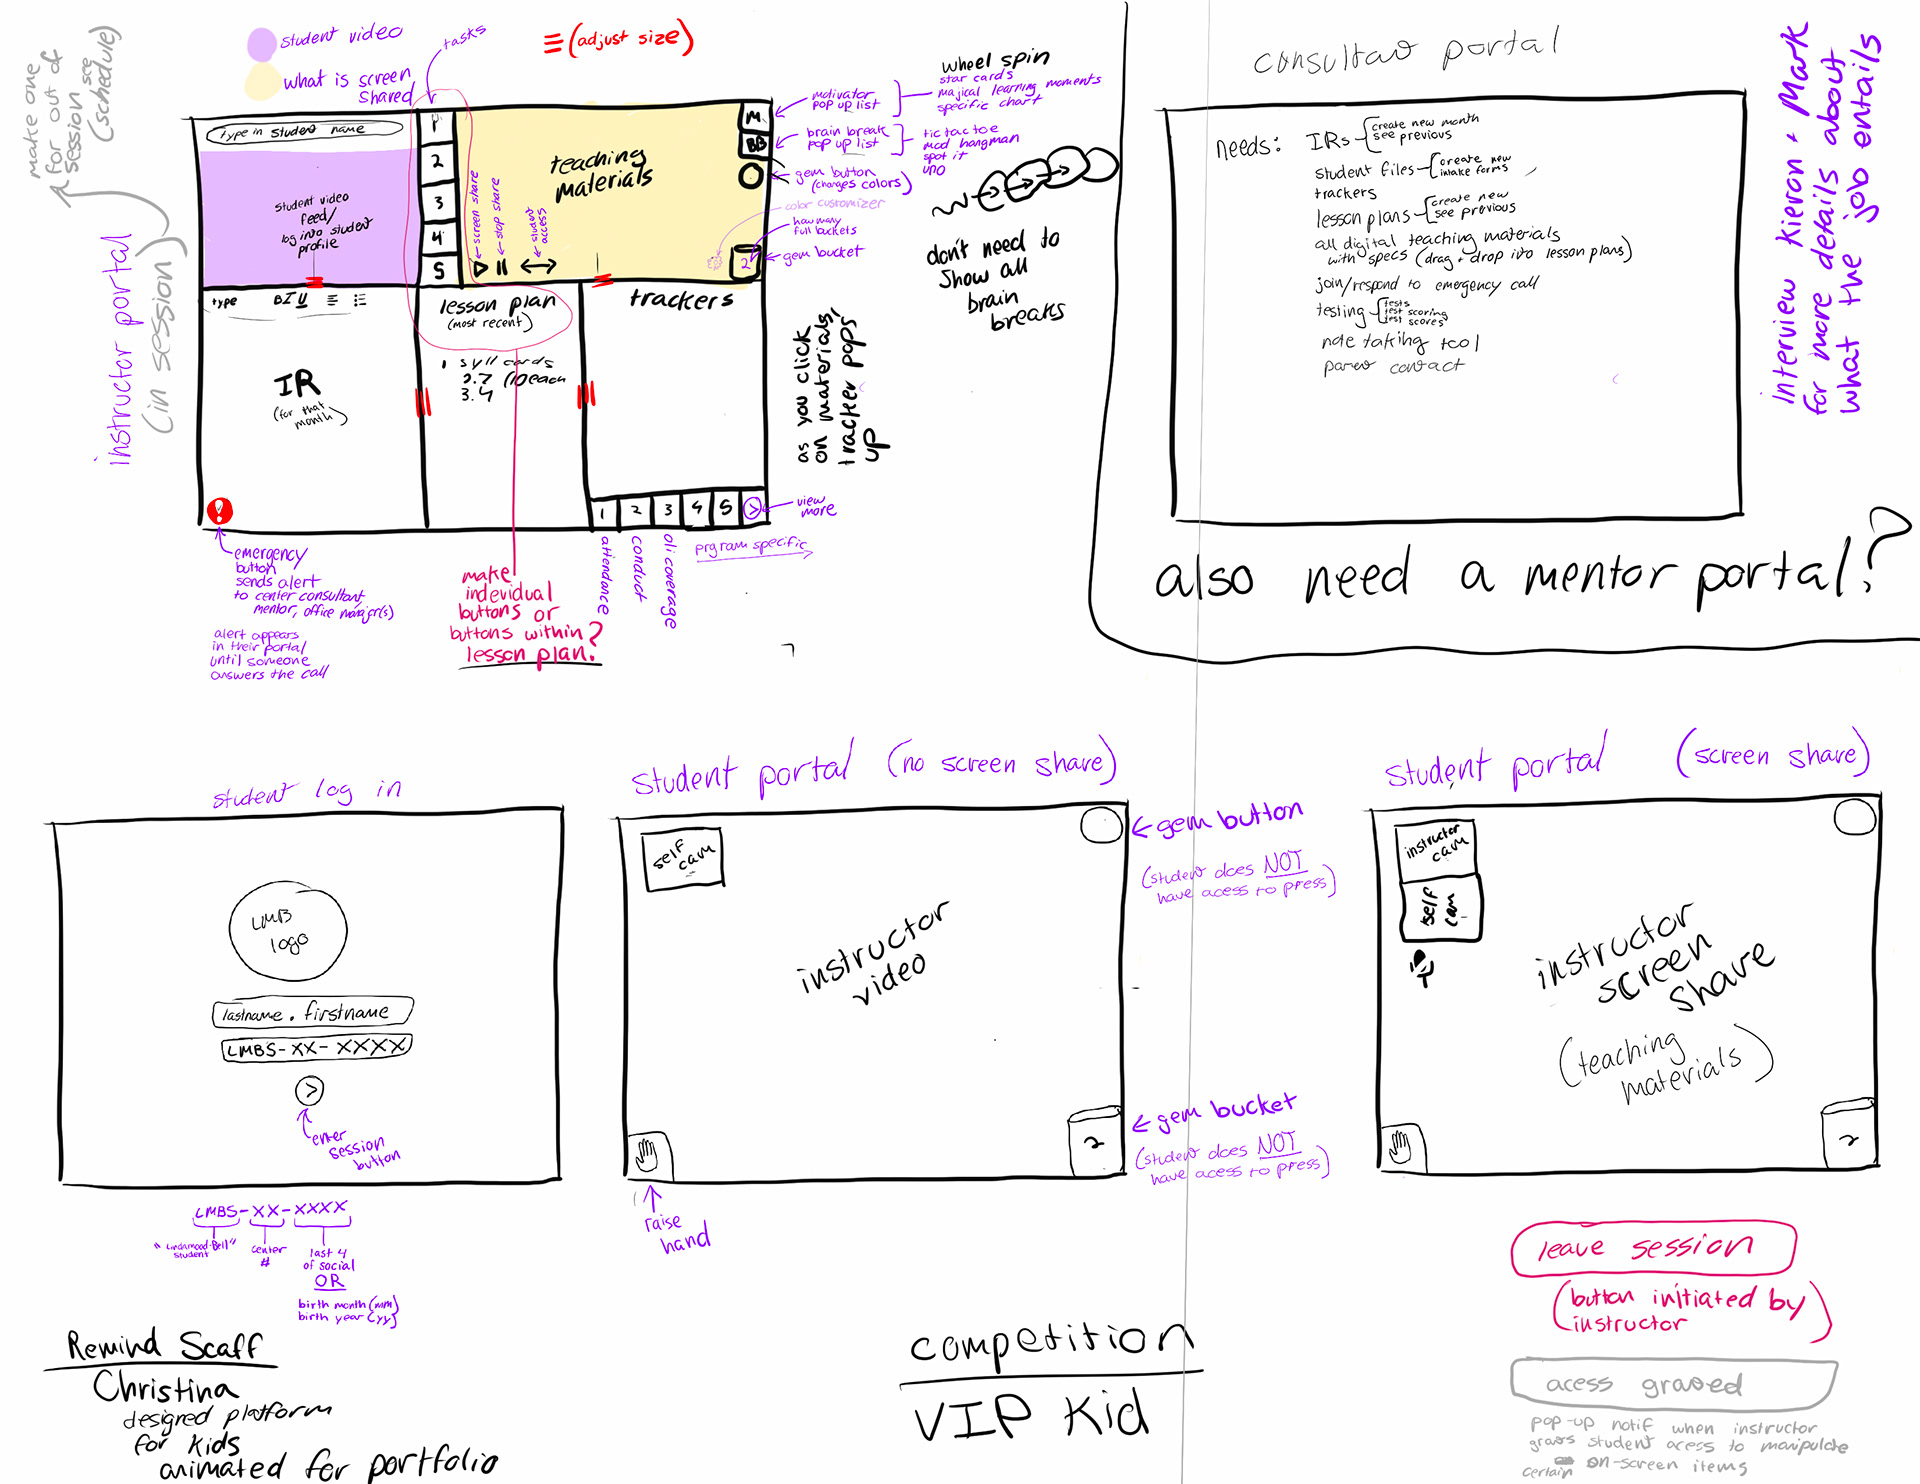 make one
for out of
session see
(schedule)
student video
what is screen
shared
tasks
(adjust size)
instructor portal
(in session)
type in student name
student video
feed/
log into student
profile
1
2
3
4
5
teaching
materials
screen share
stop share
student
access
M
BB
2
motivator
pop up list
brain break
pop up list
gem button
(changes colors)
color customizer
how many
full buckets
gem bucket
wheel spin
star cards
majical learning moments
specific chart
tic tac toe
mod hangman
spot it
uno
don't need to
show all
brain
breaks
type
B I U
IR
(for that
month)
lesson plan
(most recent)
1 syll cards
2.7 (10 each
3.4
trackers
1
2
3
4
5
>
view
more
as you click
on materials,
tracker pops
up
!
emergency
button
sends alert
to center consultant,
mentor, office manajer(s)
alert appears
in their portal
until someone
answers the call
make
individual
buttons or
buttons within
lesson plan?
attendance
conduct
oli coverage
prgram specific
consultant portal
needs:
IRs
create new month
see previous
student files
create new
intake forms
trackers
lesson plans
create new
see previous
all digital teaching materials
with specs (drag + drop into lesson plans)
join/respond to emergency call
testing
tests
test scoring
test scores
note taking tool
parent contact
Interview Kieran + Mark
for more details about
what the job entails
also need a mentor portal?
student log in
LMB
logo
lastname . firstname
LMBS-XX-XXXX
>
enter
session
button
LMBS-XX-XXXX
"Lindamood-Bell"
student
center
#
last 4
of social
OR
birth month (mm)
birth year (yy)
student portal (no screen share)
self
cam
instructor
video
2
raise
hand
gem button
(student does NOT
have acess to press)
gem bucket
(student does NOT
have acess to press)
student portal (screen share)
instructor
cam
self
cam
instructor
screen
share
(teaching
materials)
2
leave session
(button initiated by
instructor)
acess granted
pop-up notif when instructor
grants student acess to manipulate
certain on-screen items
Remind Scaff
Christina
designed platform
for kids
animated for portfolio
competition
VIP Kid